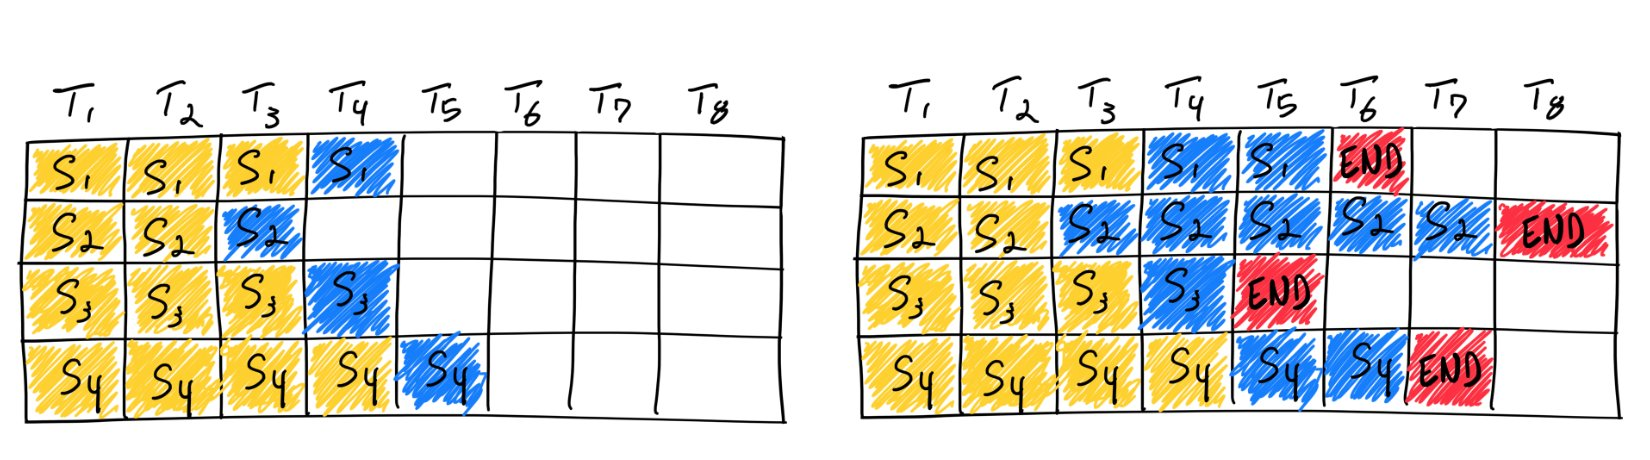 T1 T2 T3 T4 T5 T6 T7 T8
S1 S1 S1 S1
S2 S2 S2
S3 S3 S3 S3
S4 S4 S4 S4 S4
T1 T2 T3 T4 T5 T6 T7 T8
S1 S1 S1 S1 S1 END
S2 S2 S2 S2 S2 S2 S2 END
S3 S3 S3 S3 END
S4 S4 S4 S4 S4 S4 END